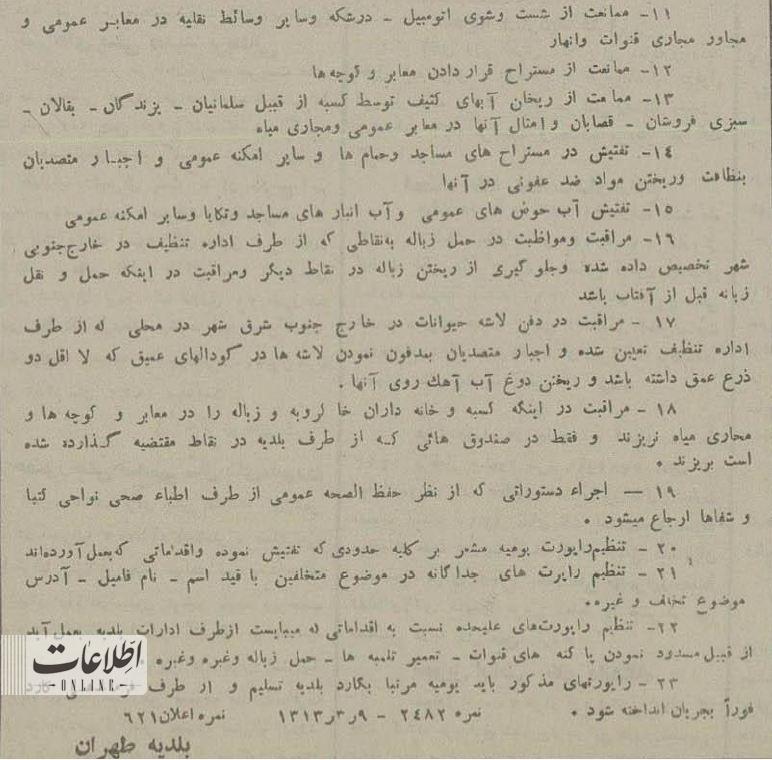 ۱۱- ممانعت از شست وشوی اتومبیل - درشکه وسایر وسائط نقلیه در معابر عمومی و
مجاور مجاری قنوات وانهار
۱۲- ممانعت از مستراح قرار دادن معابر و کوچه ها
۱۳- ممانعت از ریختن آبهای کثیف توسط کسبه از قبیل سلمانیان - پزندگان- بقالان -
سبزی فروشان - قصابان و امثال آنها در معابر عمومی ومجاری میاه
۱۴- تفتیش در مستراح های مساجد وحمام ها و سایر امکنه عمومی و اجبار متصدیان
بنظافت وریختن مواد ضد عفونی در آنها
۱۵- تفتیش آب حوض های عمومی وآب انبار های مساجد وتکایا وسایر امکنه عمومی
۱۶- مراقبت ومواظبت در حمل زباله بنقاطی که از طرف اداره تنظیف در خارج جنوبی
شهر تخصیص داده شده وجلو گیری از ریختن زباله در نقاط دیگر ومراقبت در اینکه حمل و نقل
زباله قبل از آفتاب باشد
۱۷ - مراقبت در دفن لاشه حیوانات در خارج جنوب شرق شهر در محلی که از طرف
اداره تنظیف تعیین شده و اجبار متصدیان بمدفون نمودن لاشه ها در گودالهای عمیق که لا اقل دو
ذرع عمق داشته باشد و ریختن دوغ آب آهک روی آنها .
۱۸ - مراقبت در اینکه کسبه و خانه داران خا کروبه و زباله را در معابر و کوچه ها و
مجاری میاه نریزند و فقط در صندوق هائی که از طرف بلدیه در نقاط مقتضیه گذارده شده
است بریزند .
۱۹ — اجراء دستوراتی که از نظر حفظ الصحه عمومی از طرف اطباء صحی نواحی کتبا
و شفاها ارجاع میشود .
۲۰ - تنظیم راپورت یومیه مشعر بر کلیه حدودی که تفتیش نموده واقداماتی که بعمل آورده اند
۲۱ - تنظیم راپرت های جدا گانه در موضوع متخلفین با قید اسم - نام فامیل - آدرس
موضوع تخلف و غیره.
۲۲- تنظیم راپورت های علیحده نسبت به اقداماتی که میبایست از طرف ادارات بلدیه بعمل آید
از قبیل مسدود نمودن پا کنه های قنوات - تعمیر تلمبه ها - حمل زباله وغیره وغیره .
۲۳ - راپورتهای مذکور باید یومیه مرتبا بگارد بلدیه تسلیم و از طرف گارد
فوراً بجریان انداخته شود . نمره ۲۴۸۲ - ۹ر۳ر۱۳۱۳ نمره اعلان ۶۲۱
بلدیه طهران
اطلاعات
ONLINE